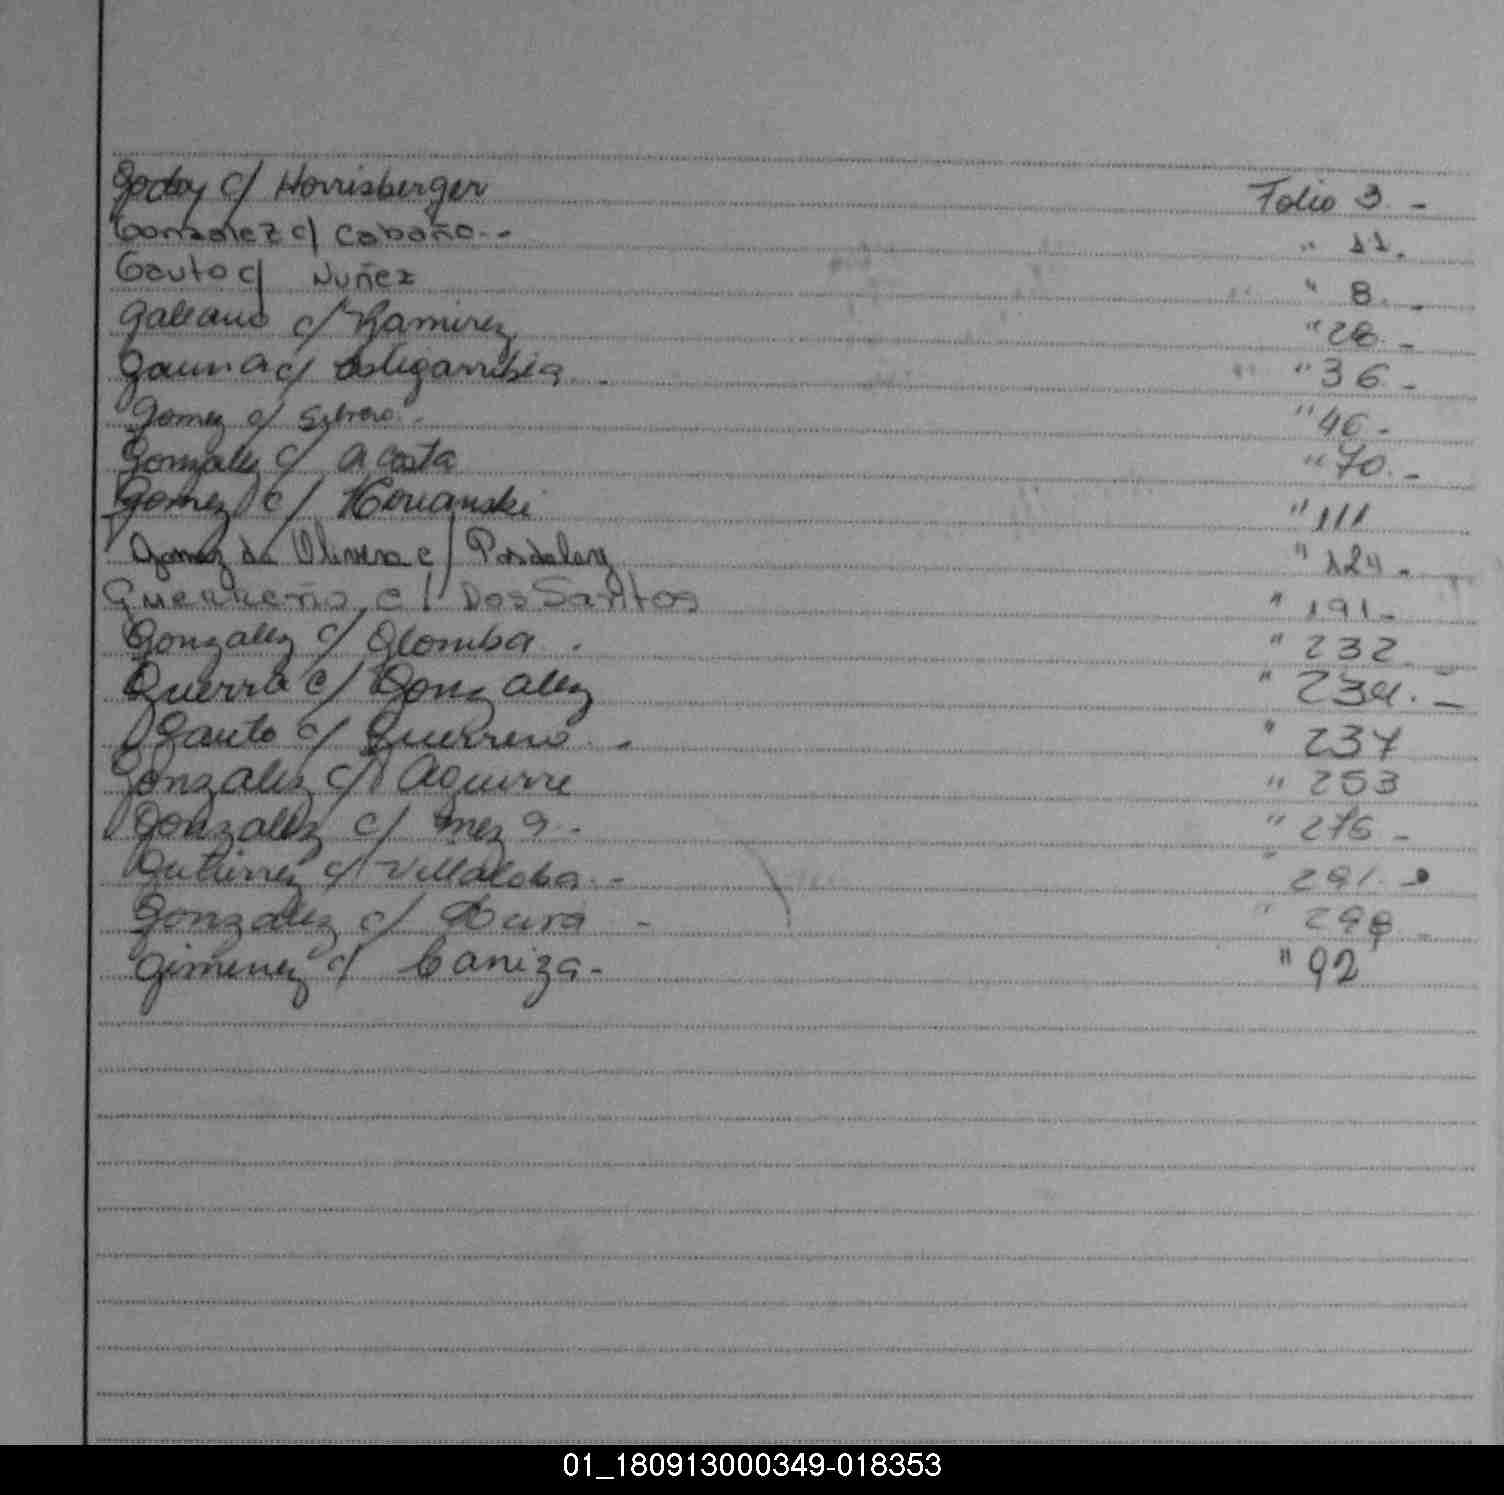 Godoy c/ Horrisberger Folio 3.-
Gonzalez c/ Cabaña.- " 11.
Gauto c/ Nuñez " 8.-
Galeano c/ Ramirez " 28.-
Gauna c/ Estigarribia. " 36.-
Gomez c/ " 46-
Gonzalez c/ Acosta " 70.-
Gomez c/ " 111
Gomez de Olivera c/ " 124.
c/ Dos Santos " 191-
Gonzalez c/ Glomba. " 232
Guerra c/ Gonzalez " 234.-
Gauto c/ Guerrero. " 237
Gonzalez c/ Aguirre " 253
Gonzalez c/ Meza.- " 276-
Gutierrez c/ Villaloba.- " 291.
Gonzalez c/ - "
Gimenez c/ Caniza- " 92
01_180913000349-018353